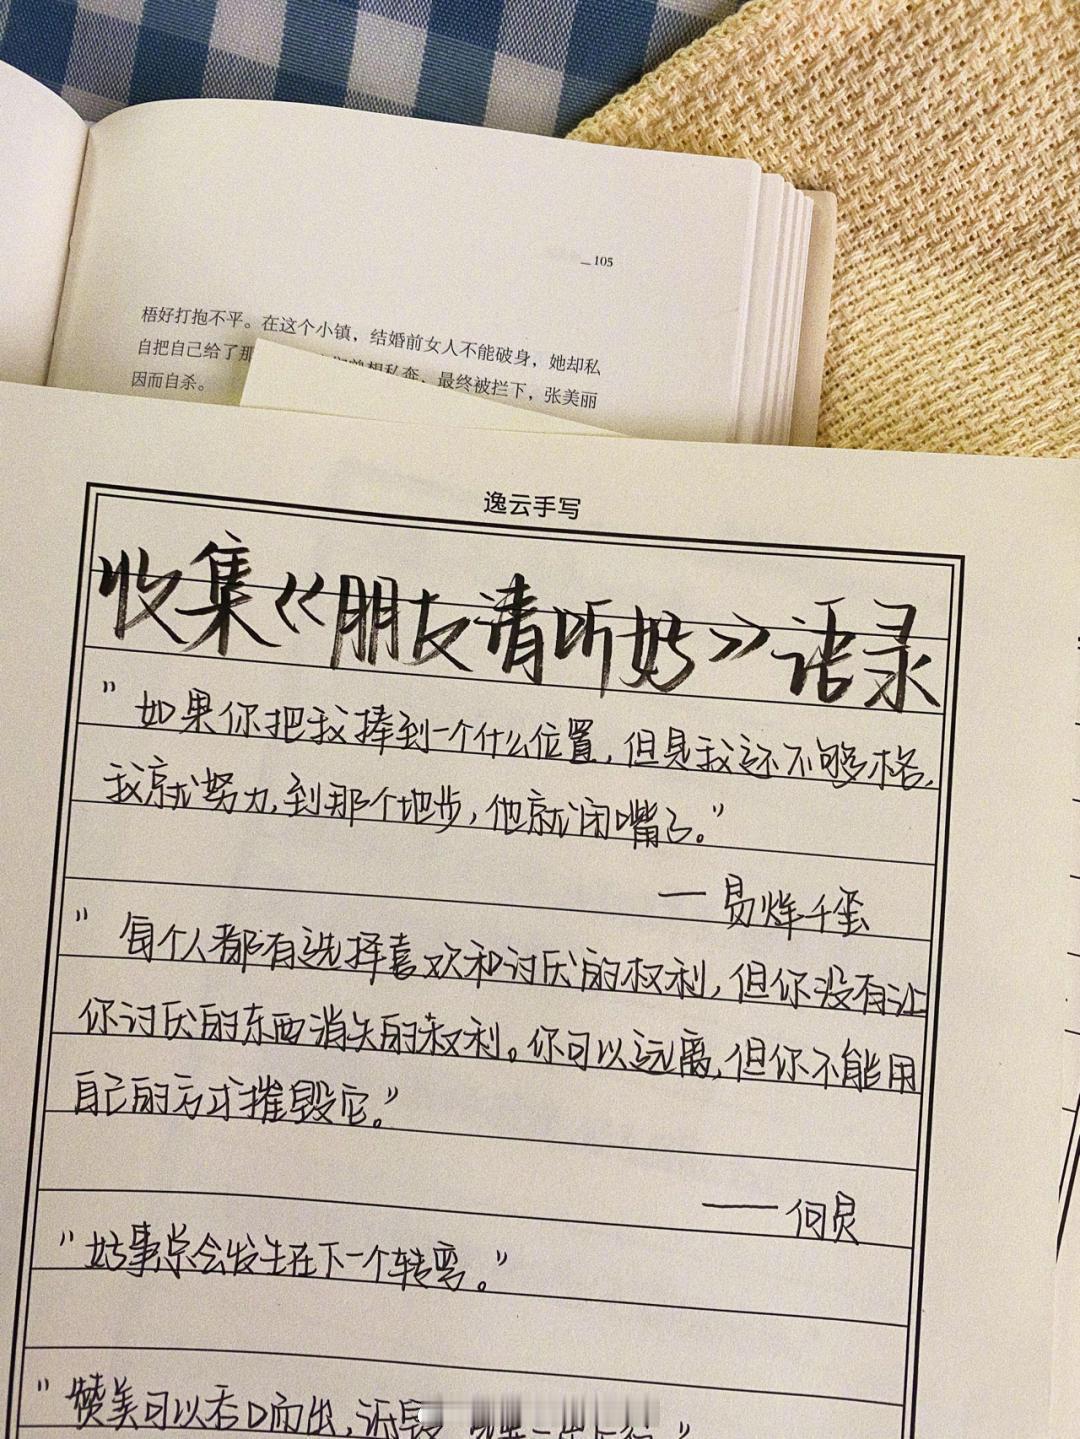 105
梧好打抱不平。在这个小镇，结婚前女人不能破身，她却私
自把自己给了那 曾想私奔，最终被拦下，张美丽
因而自杀。
逸云手写
收集《朋友请听好》语录
"如果你把我捧到一个什么位置，但是我还不够格，
我就努力，到那个地步，他就闭嘴了。"
——易烊千玺
"每个人都有选择喜欢和讨厌的权利，但你没有让
你讨厌的东西消失的权利。你可以远离，但你不能用
自己的方式摧毁它。"
——何炅
"好事总会发生在下一个转弯。"
"赞美可以否口而出，诋毁